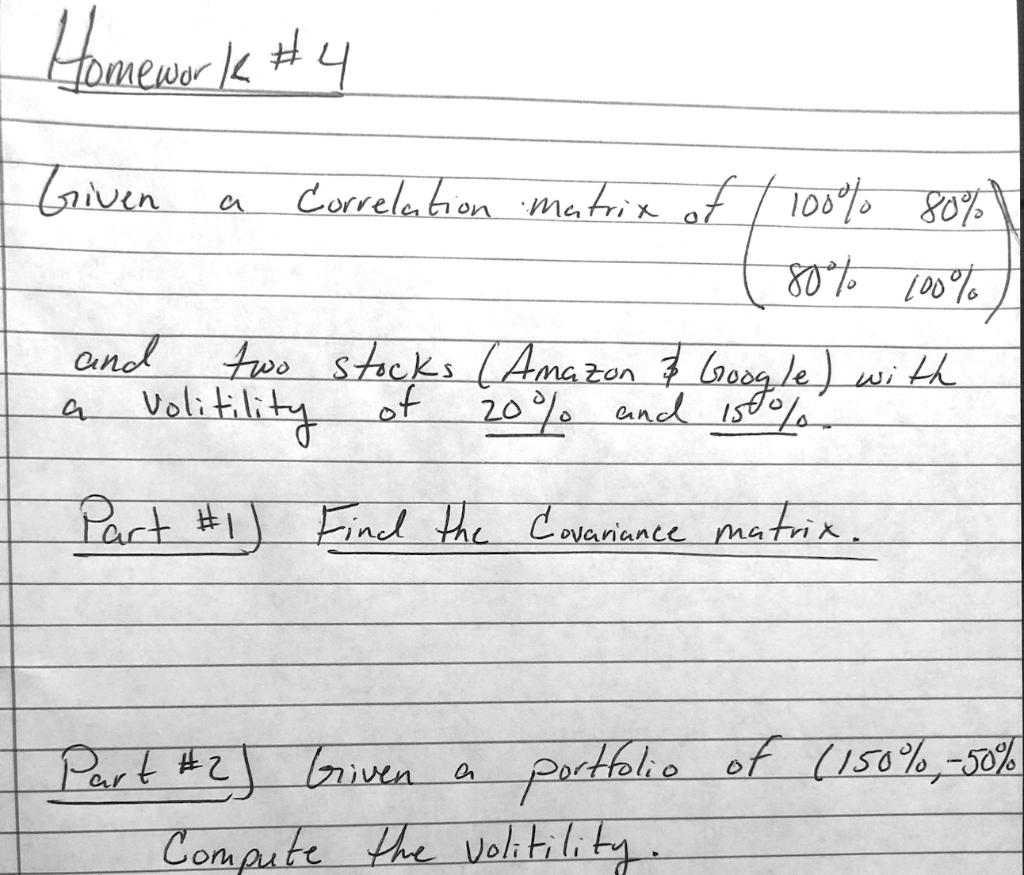 Homework #4
Given a Correlation matrix of ( 100% 80%
80% 100% )
and two stocks (Amazon & Google) with
a Volitility of 20% and 150%.
Part #1) Find the Covariance matrix.
Part #2) Given a portfolio of (150%, -50%
Compute the volitility.